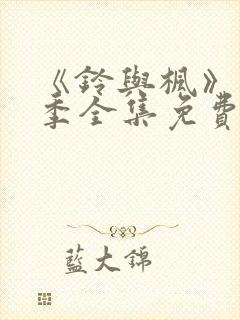 《鈴與楓》
季全集免費
藍大錦